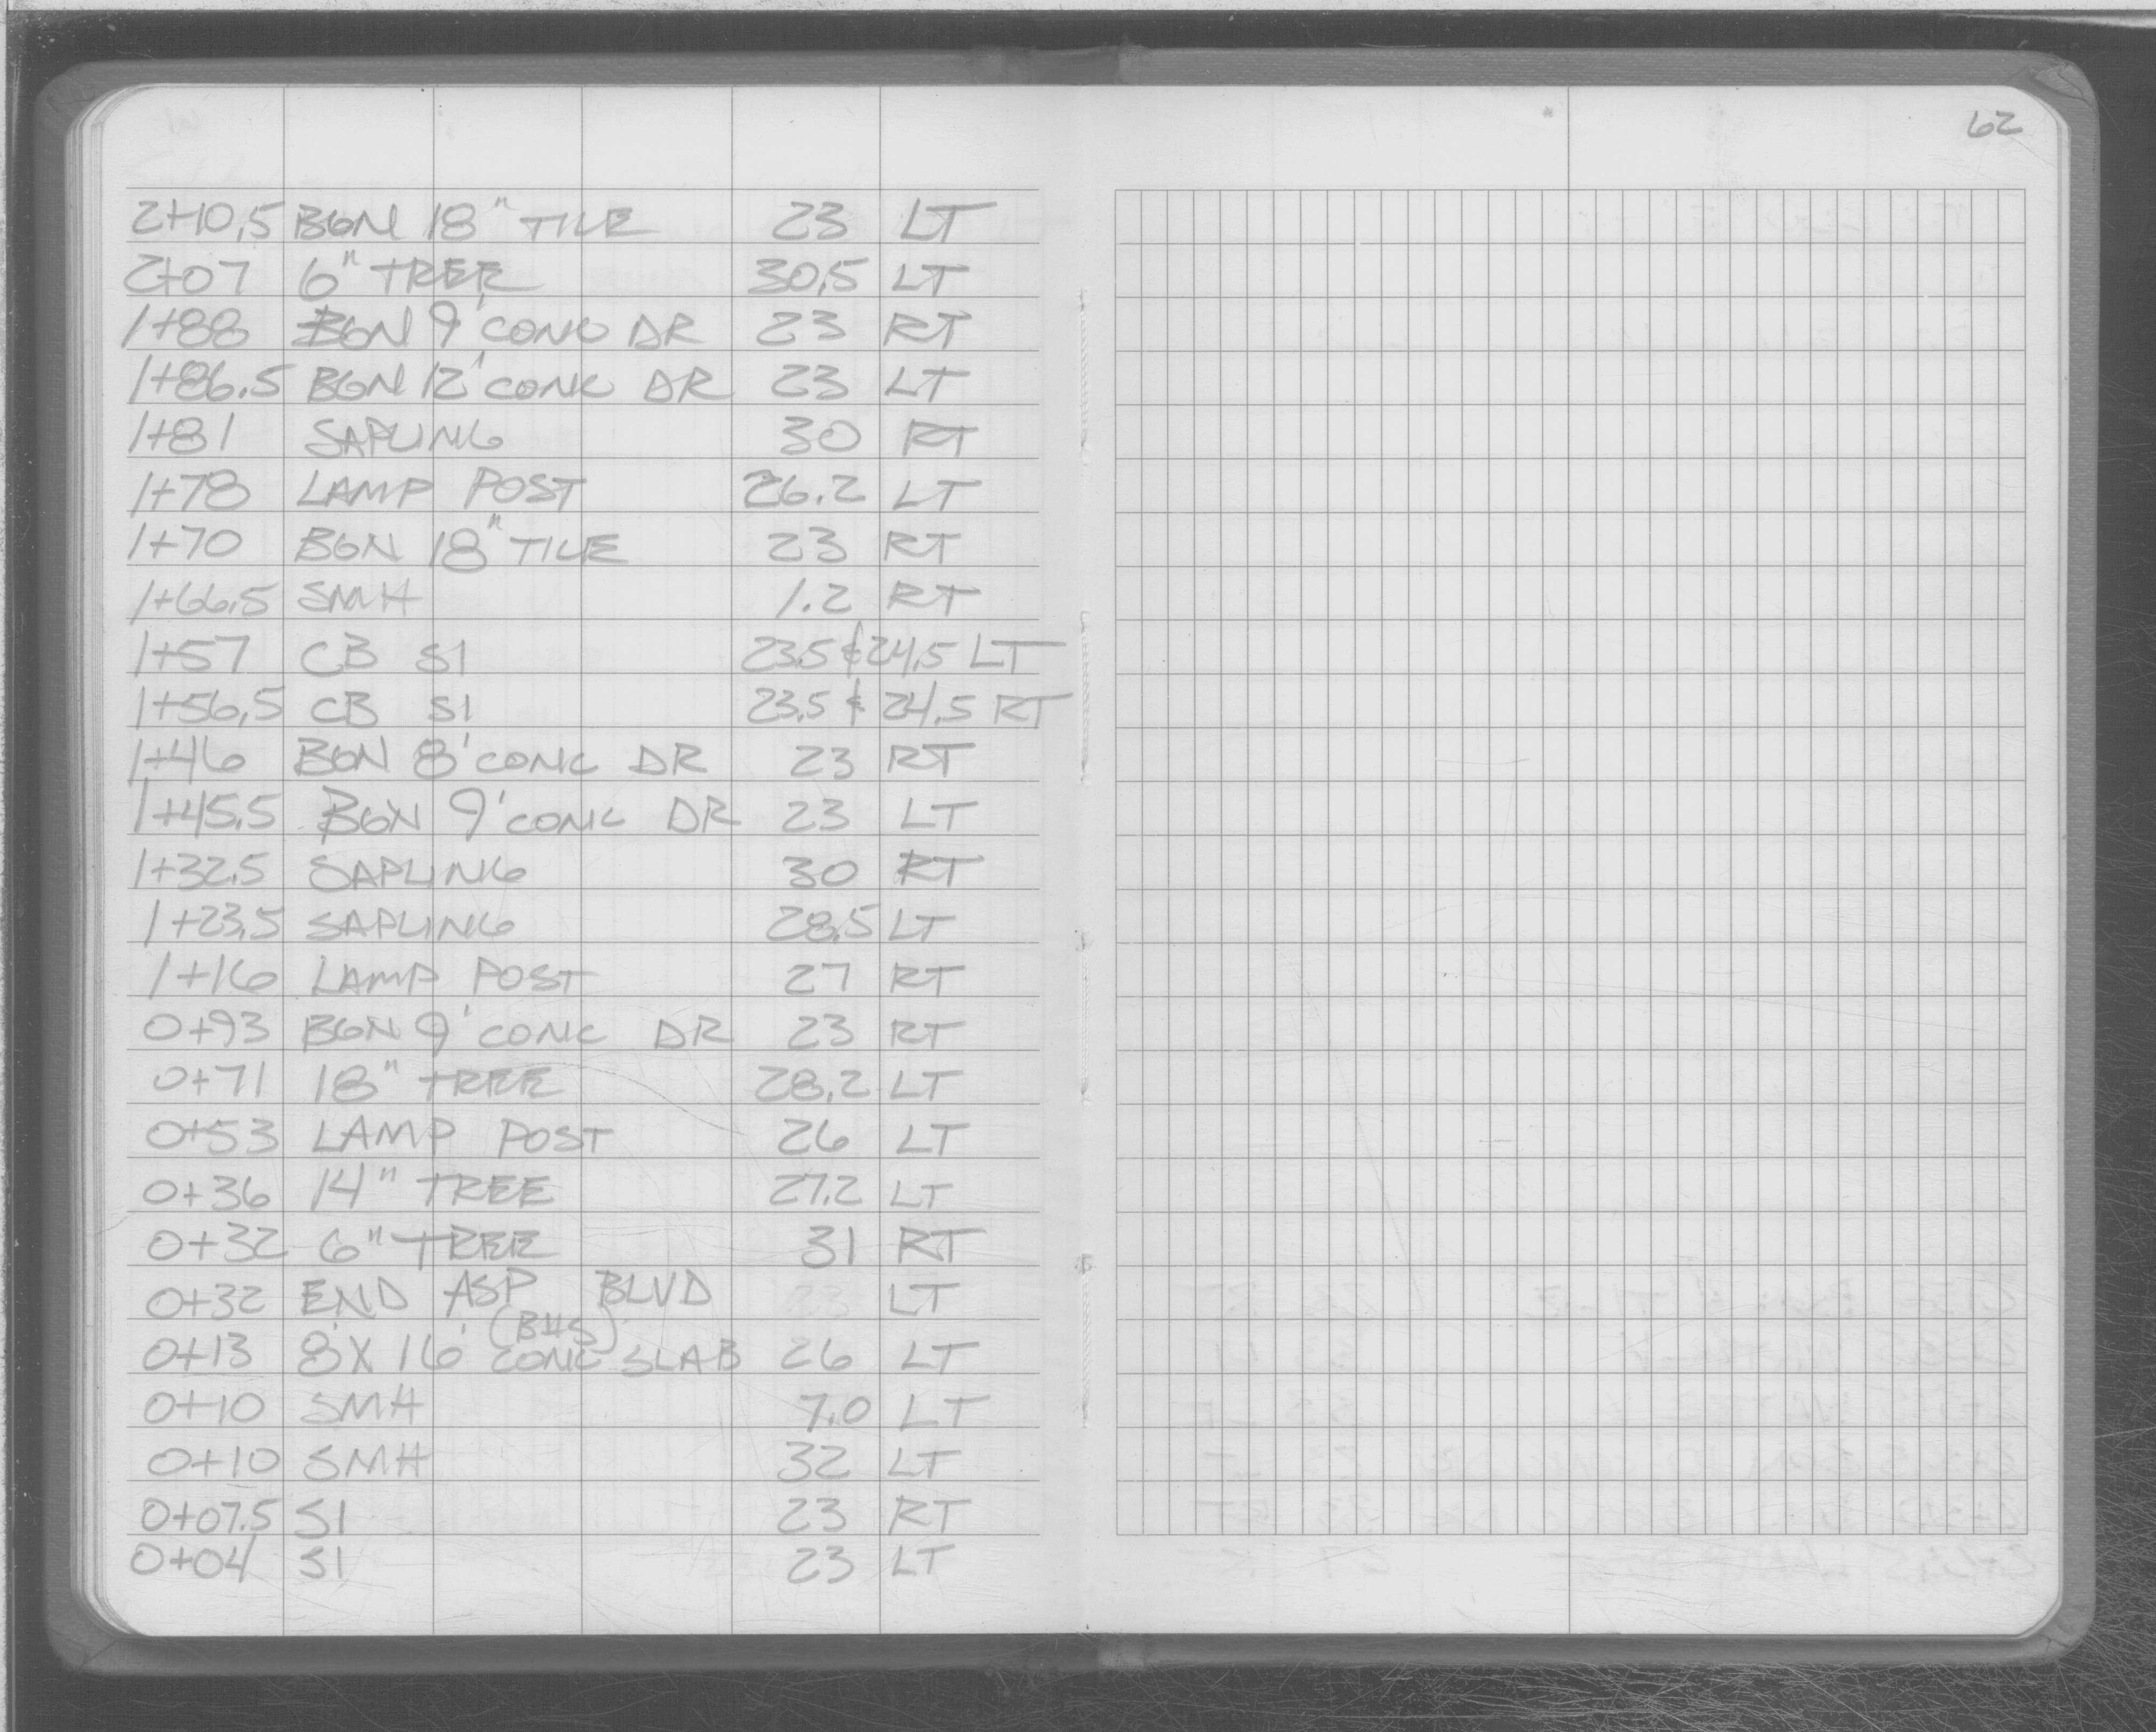 62
2+10.5 BGN 18" TILE 23 LT
2+07 6" TREE 30.5 LT
1+88 BGN 9' CONC DR 23 RT
1+86.5 BGN 12' CONC DR 23 LT
1+81 SAPLING 30 RT
1+78 LAMP POST 26.2 LT
1+70 BGN 18" TILE 23 RT
1+66.5 SMH 1.2 RT
1+57 CB SI 23.5 & 24.5 LT
1+56.5 CB SI 23.5 & 24.5 RT
1+46 BGN 8' CONC DR 23 RT
1+45.5 BGN 9' CONC DR 23 LT
1+32.5 SAPLING 30 RT
1+23.5 SAPLING 28.5 LT
1+16 LAMP POST 27 RT
0+93 BGN 9' CONC DR 23 RT
0+71 18" TREE 28.2 LT
0+53 LAMP POST 26 LT
0+36 14" TREE 27.2 LT
0+32 6" TREE 31 RT
0+32 END ASP BLVD LT
(BUS)
0+13 8' X 16' CONC SLAB 26 LT
0+10 SMH 7.0 LT
0+10 SMH 32 LT
0+07.5 SI 23 RT
0+04 SI 23 LT